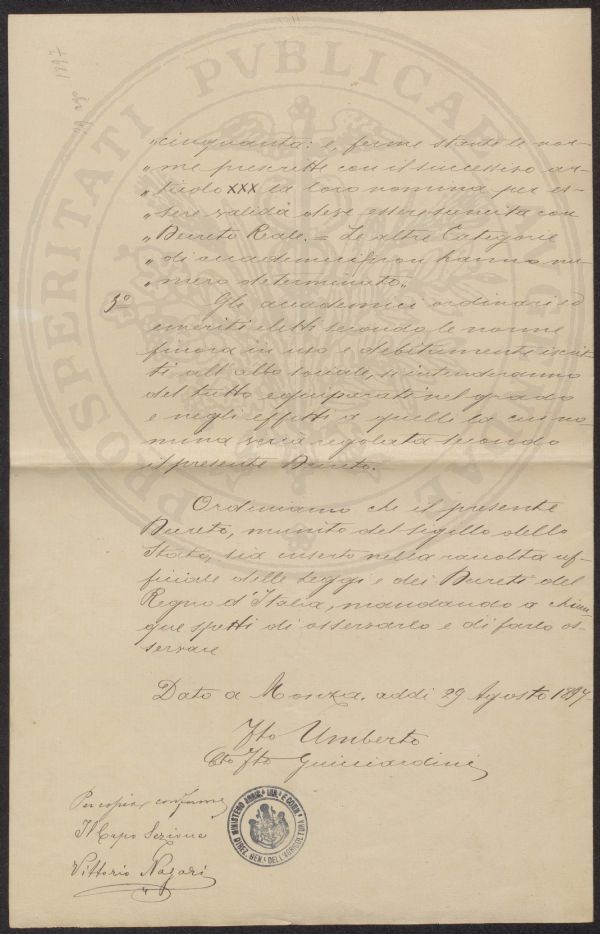 1897
29 ago
PROSPERITATI PVBLICAE AVG
„cinquanta: e, ferme stante le nor-
„me prescritte con il successivo ar-
„ticolo XXX la loro nomina per es-
„sere valida deve esser sancita con
„Decreto Reale. = Le altre Categorie
„di accademici non hanno nu-
„mero determinato„
3º Gli accademici ordinari ed
emeriti eletti secondo le norme
finora in uso e debitamente iscrit-
ti all'albo sociale, si intenderanno
del tutto equiparati nel grado
e negli effetti a quelli la cui no-
mina verrà regolata secondo
il presente Decreto.
Ordiniamo che il presente
Decreto, munito del sigillo dello
Stato, sia inserto nella raccolta uf-
ficiale delle Leggi e dei Decreti del
Regno d'Italia, mandando a chiun-
que spetti di osservarlo e di farlo os-
servare
Dato a Monza, addì 29 Agosto 1897
Fto Umberto
Cto Fto Guicciardini
Per copia conforme
Il Capo Sezione
Vittorio Nazari
MINISTERO AGRIC. IND. E COMM.
DIREZ. GEN. DELL'AGRICOLTURA